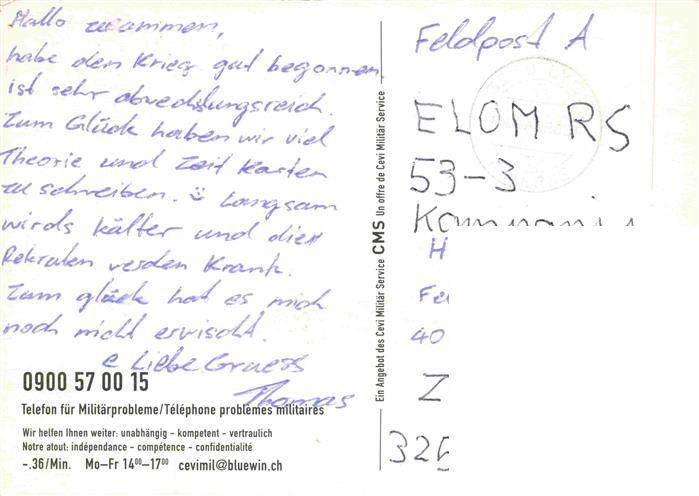 Hallo zusammen,
habe den Krieg gut begonnen.
ist sehr abwechslungsreich.
Zum Glück haben wir viel
Theorie und Zeit Karten
zu schreiben. Langsam
wirds kälter und die
Rekruten werden Krank.
Zum glück hat es mich
noch nicht erwischt.
e Liebe Gruess
Thomas
0900 57 00 15
Telefon für Militärprobleme/Téléphone problèmes militaires
Wir helfen Ihnen weiter: unabhängig – kompetent – vertraulich
Notre atout: indépendance – compétence – confidentialité
–.36/Min. Mo–Fr 14⁰⁰–17⁰⁰ cevimil@bluewin.ch
Ein Angebot des Cevi Militär Service CMS Un offre de Cevi Militär Service
Feldpost A
ELOM RS
53-3
H
Fe
40
Z
325